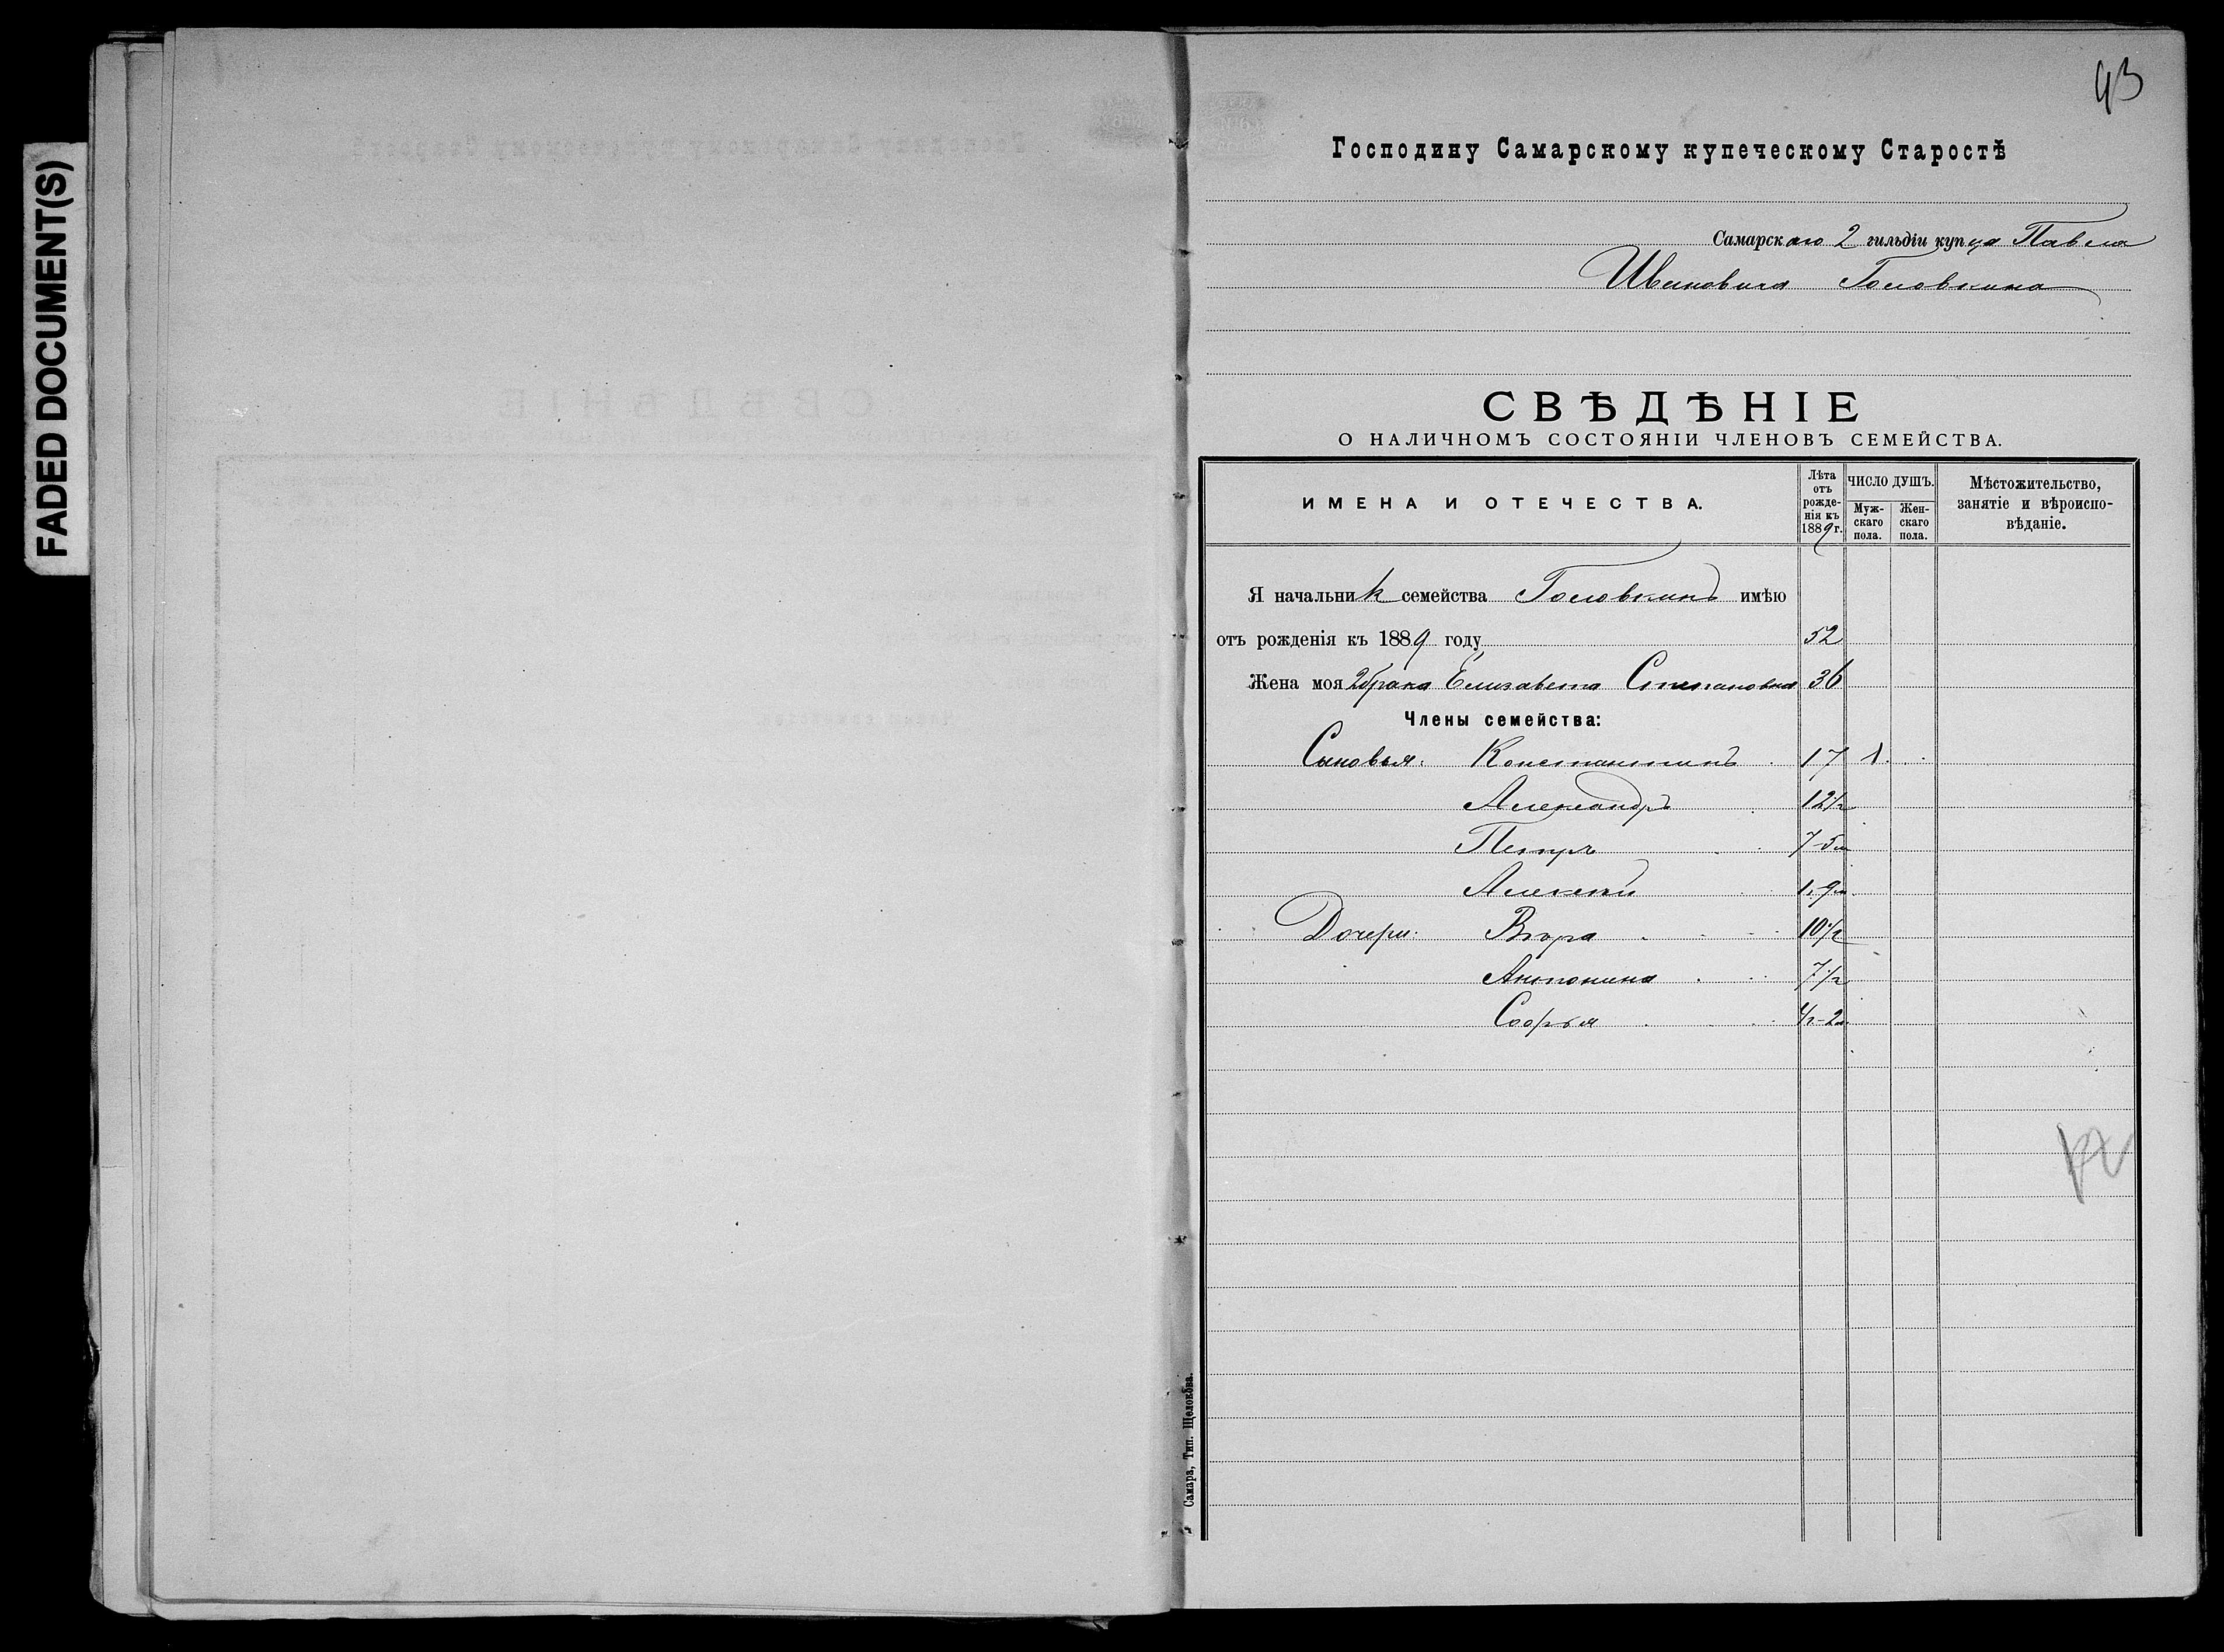 FADED DOCUMENT(S)
93
Господину Самарскому купеческому Старостѣ
Самарскаго 2 гильдіи купца Павла
Ивановича Головкина
СВѢДѢНІЕ
О НАЛИЧНОМЪ СОСТОЯНІИ ЧЛЕНОВЪ СЕМЕЙСТВА.
ИМЕНА И ОТЕЧЕСТВА.
Лѣта отъ рожденія къ 1889 г.
ЧИСЛО ДУШЪ.
Мужскаго пола.
Женскаго пола.
Мѣстожительство, занятіе и вѣроисповѣданіе.
Я начальник семейства Головкинъ имѣю
отъ рожденія къ 1889 году 52
Жена моя 2 брака Елизавета Степановна 36
Члены семейства:
Сыновья: Константинъ 17 1
Александръ 12 1/2
Петръ 7-5м
Алексѣй 1, 9м.
Дочери: Вѣра 10 1/2
Антонина 7 1/2
Софья 4г-2м.
Самара, Тип. Щелокова.